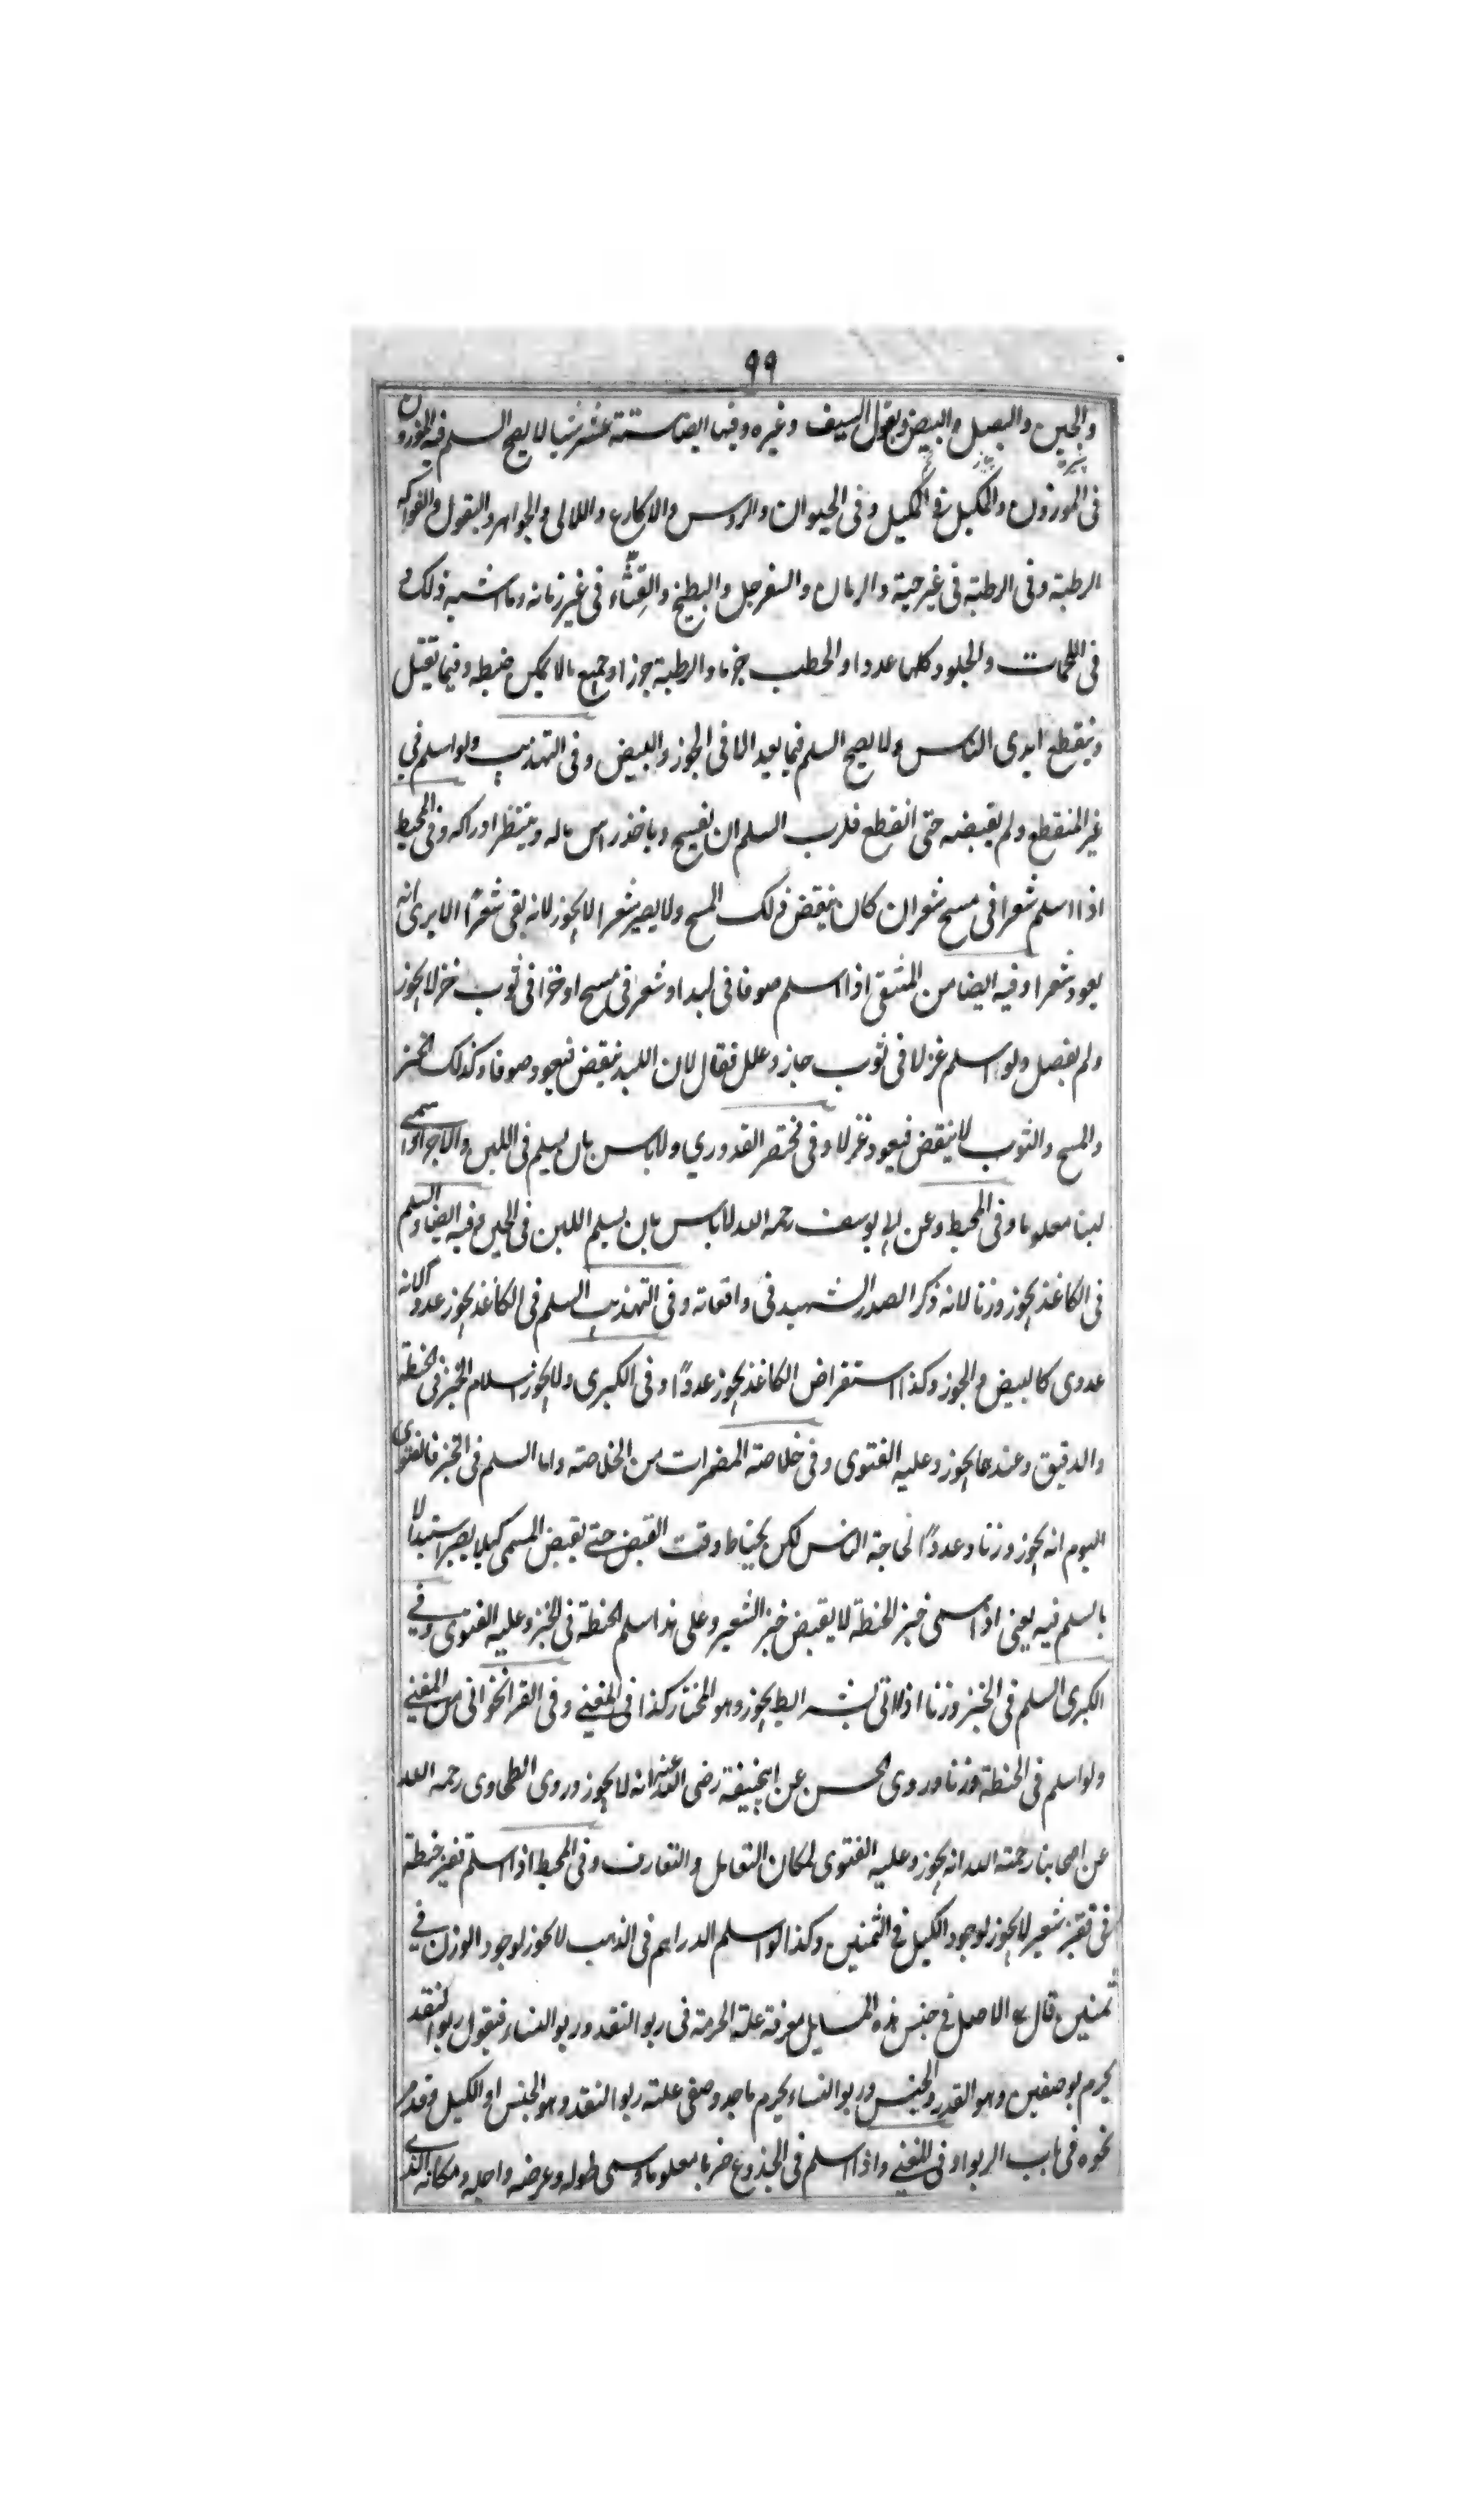 ٩٩
والجبن والبصل والبيض ونقول السيف وغيره وفيها ايضا ستة عشر شيا لا يصح السلم فيه الموزون
فى الموزون والمكيل فى المكيل وفى الحيوان والروس والاكارع واللالى والجواهر والبقول والفواكه
الرطبة وفى الرطبة فى غير حينه والرمان والسفرجل والبطيخ والقثّاء فى غير زمانه وما اشبه ذلك و
فى اللحمات والجلود كلها عددا والحطب حزما والرطبة جرزا وجميع مالا يمكن ضبطه وفيما يقبل
وينقطع ايدى الناس ولا يصح السلم فيما يعد الا فى الجوز والبيض وفى التهذيب ولو اسلم فى
غير المنقطع ولم يقبضه حتى انقطع فلرب السلم ان يفسخ وياخذ راس ماله وينتظر ادراكه وفى المحيط
اذا اسلم شعرا فى مسح شعر ان كان ينقض ذلك المسح ولا يصير شعرا لا يجوز لانه بقى شعرًا الا يرى انه
يعود شعرا وفيه ايضا من المنتقى اذا اسلم صوفا فى لبد او شعر فى مسح او خزا فى ثوب خز لا يجوز
ولم يفصل ولو اسلم غزلا فى ثوب جاز وعلل فقال لان اللبد ينقض فيعود صوفا وكذلك الخز
والمسح والثوب لا ينقض فيعود غزلا وفى مختصر القدوري ولا باس بان يسلم فى اللبن والاجر اذا سمى
لبنا معلوما وفى المحيط وعن ابى يوسف رحمه الله لا باس بان يسلم اللبن فى الجبن وفيه ايضا والسلم
فى الكاغذ يجوز وزنا لانه ذكر الصدر الشهيد فى واقعاته وفى التهذيب السلم فى الكاغذ يجوز عددا لانه
عددى كالبيض والجوز وكذا استقراض الكاغذ يجوز عددًا وفى الكبرى ولا يجوز اسلام الخبز فى الحنطة
والدقيق وعندهما يجوز وعليه الفتوى وفى خلاصة المضمرات من الخلاصة واما السلم فى الخبز فالفتوى
اليوم انه يجوز وزنا وعددًا لحاجة الناس لكن يحتاط وقت القبض حتى يقبض المسمى كيلا يصير استبدالا
بالمسلم فيه يعنى اذا سمى خبز الحنطة لا يقبض خبز الشعير وعلى هذا سلم الحنطة فى الخبز وعليه الفتوى وفى
الكبرى السلم فى الخبز وزنا اذا اتى بشرائط يجوز وهو المختار كذا فى المغنى وفى القراخوانى من المغنى
ولو اسلم فى الحنطة وزنا وروى الحسن عن ابيحنيفة رضى الله عنه انه لا يجوز وروى الطحاوى رحمه الله
عن اصحابنا رحمة الله انه يجوز وعليه الفتوى لمكان التعامل والتعارف وفى المحيط اذا اسلم قفيز حنطة
فى قفيز شعير لا يجوز لوجود الكيل فى الثمنين وكذا لو اسلم الدراهم فى الذهب لا يجوز لوجود الوزن فى
ثمنين قال الاصل فى جنس هذه المسايل معرفة علة الحرمة فى ربو النقد وربو النساء فيقول ربو النقد
يحرم بوصفين وهو القدر والجنس وربو النساء يحرم باحد وصفى علة ربو النقد وهو الجنس او الكيل وقد مر
نحوه فى باب الربوا وفى المغنى واذا اسلم فى الجذوع ضربا معلوما وسمى طوله وعرضه واجله ومكانه الذى